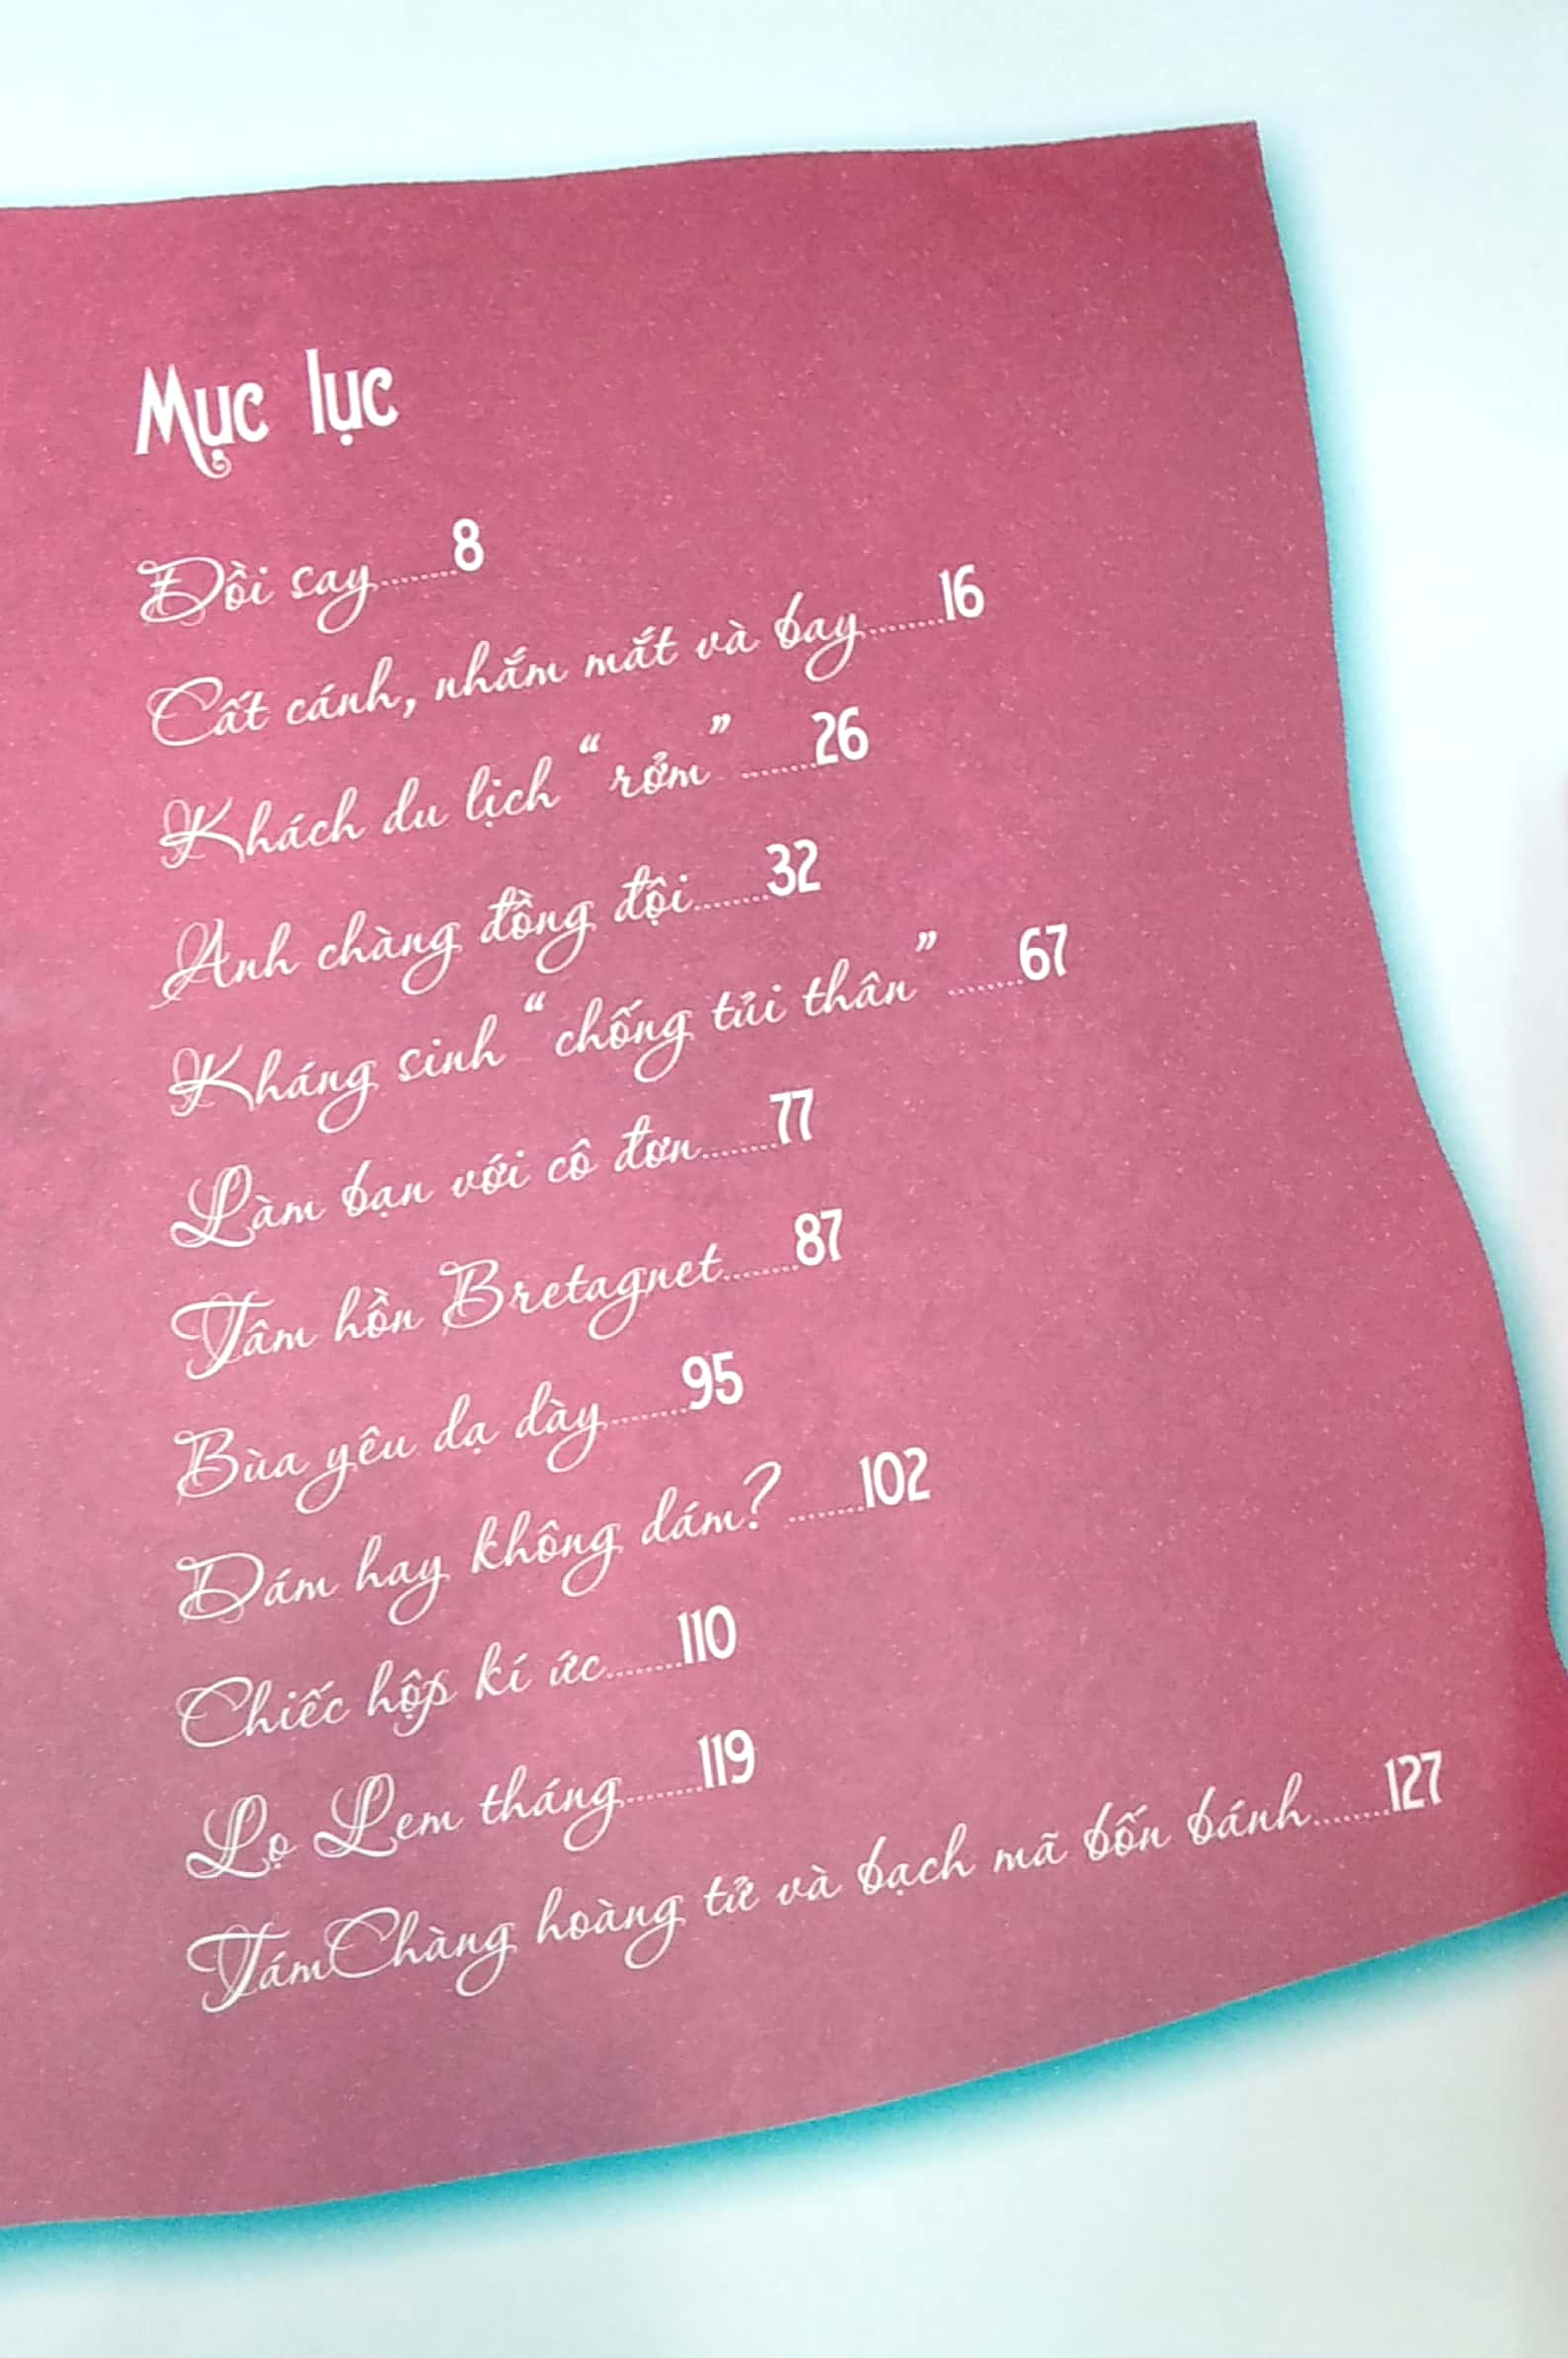 Mục lục
Đồi say........8
Cất cánh, nhắm mắt và bay........16
Khách du lịch “rởm”........26
Anh chàng đồng đội........32
Kháng sinh “chống tủi thân”........67
Làm bạn với cô đơn........77
Tâm hồn Bretagnet........87
Bùa yêu dạ dày........95
Dám hay không dám?........102
Chiếc hộp kí ức........110
Lọ Lem tháng........119
TámChàng hoàng tử và bạch mã bốn bánh........127